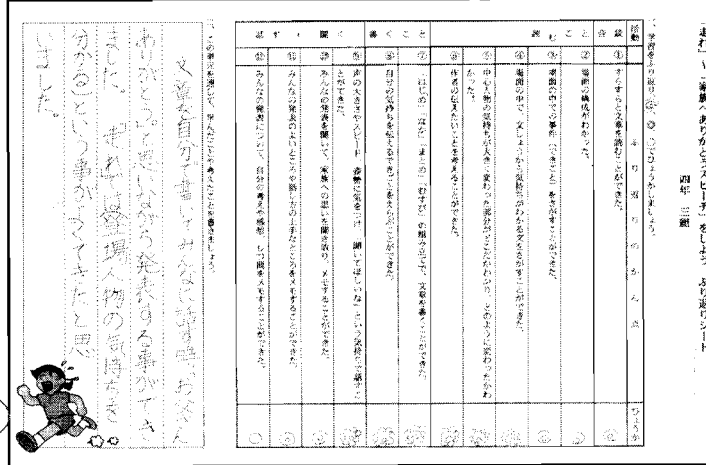 「走れ」～「家族へありがとうスピーチ」をしよう ふり返りシート
四年 三組
一、学習をふり返り、◎、○でひょうかしましょう。
活動 ふり返りのかん点 ひょうか
読むこと
① すらすらと文章を読むことができた。
② 場面の構成がわかった。
③ 場面の中での事件（できごと）をさがすことができた。
④ 場面の中で、文しょうから気持ちがわかる文をさがすことができた。
⑤ 中心人物の気持ちが大きく変わった部分がどこだかわかり、どのように変わったかわかった。
⑥ 作者の伝えたいことを考えることができた。
書くこと
⑦ 「はじめ」「なか」「まとめ」「むすび」の組み立てで、文章を書くことができた。
⑧ 自分の気持ちを伝えるできごとをえらぶことができた。
話す 聞く
⑨ 声の大きさやスピード、姿勢に気をつけ、「聞いてほしいな」という気持ちで話すことができた。
⑩ みんなの発表を聞いて、家族への思いを聞き取り、メモすることができた。
⑪ みんなの発表のよいところや話し方の上手なところをメモすることができた。
⑫ みんなの発表について、自分の考えや感想、しつ問をメモすることができた。
二、この単元を通して、学んだことや考えたことを書きましょう。
文章を自分で書いてみんなに話す時、お父さん
ありがとう。と思いながら発表する事ができ
ました。「走れ」に登場人物の気持ちを
分かる」という事がよくできたと思
いました。